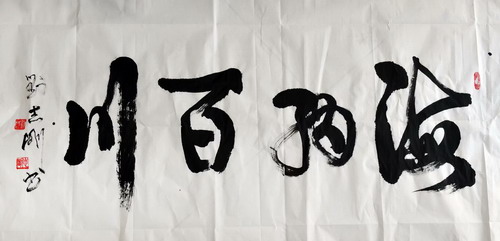 海纳百川
刘志刚书